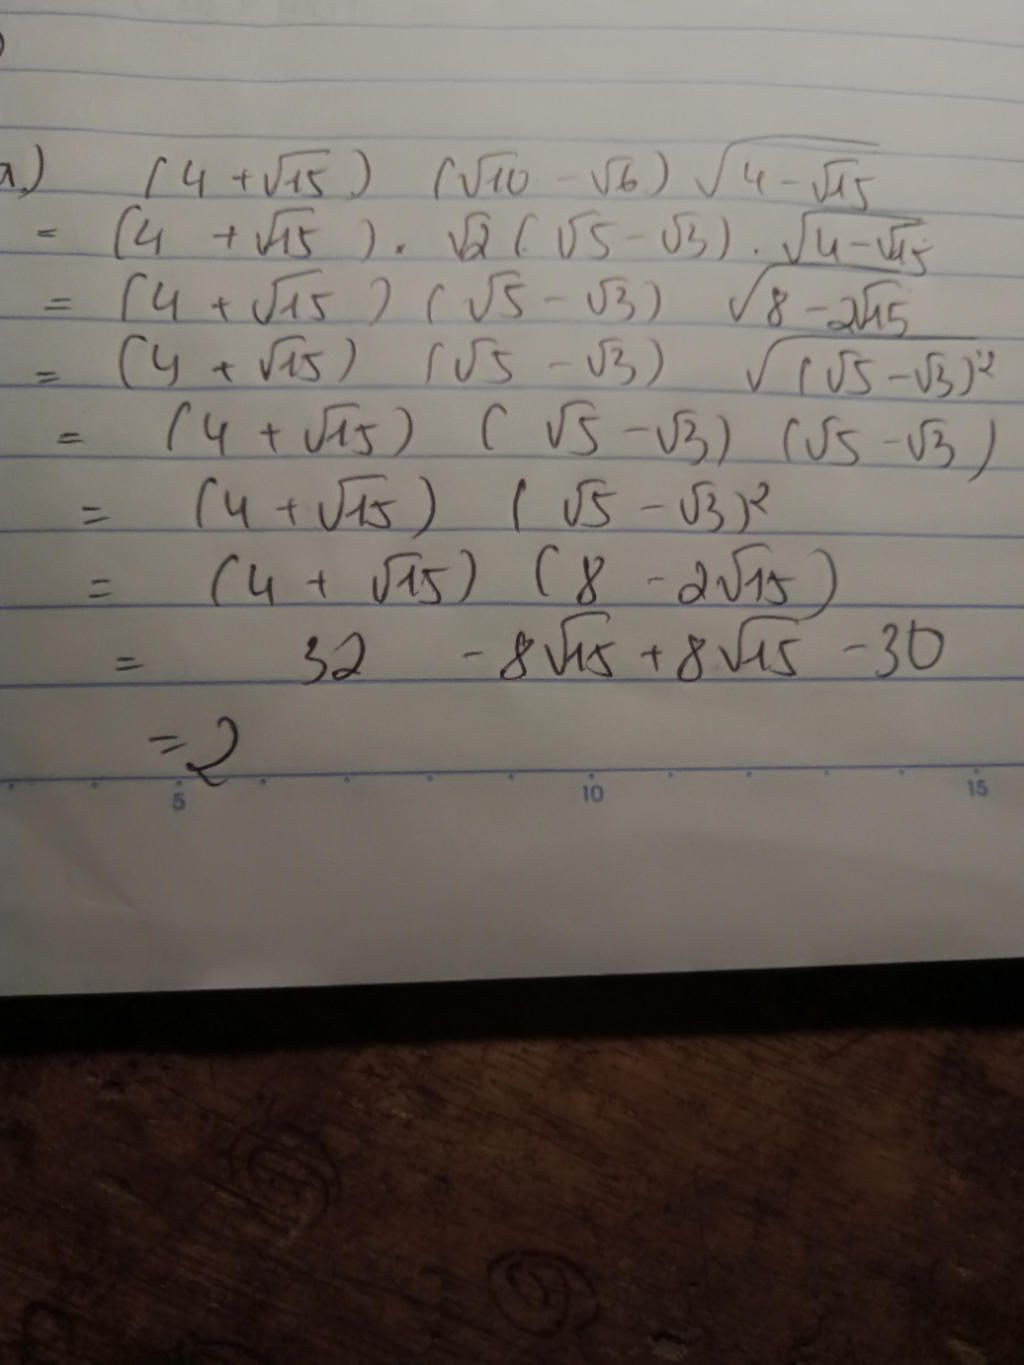 a) (4 + √15) (√10 - √6) √(4 - √15)
= (4 + √15) . √2 (√5 - √3) . √(4 - √15)
= (4 + √15) (√5 - √3) √(8 - 2√15)
= (4 + √15) (√5 - √3) √((√5 - √3)²)
= (4 + √15) (√5 - √3) (√5 - √3)
= (4 + √15) (√5 - √3)²
= (4 + √15) (8 - 2√15)
= 32 - 8√15 + 8√15 - 30
= 2
5 10 15